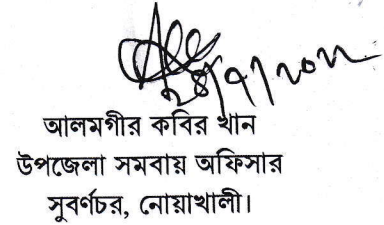 ২৪/৭/২০২২
আলমগীর কবির খান
উপজেলা সমবায় অফিসার
সুবর্ণচর, নোয়াখালী।